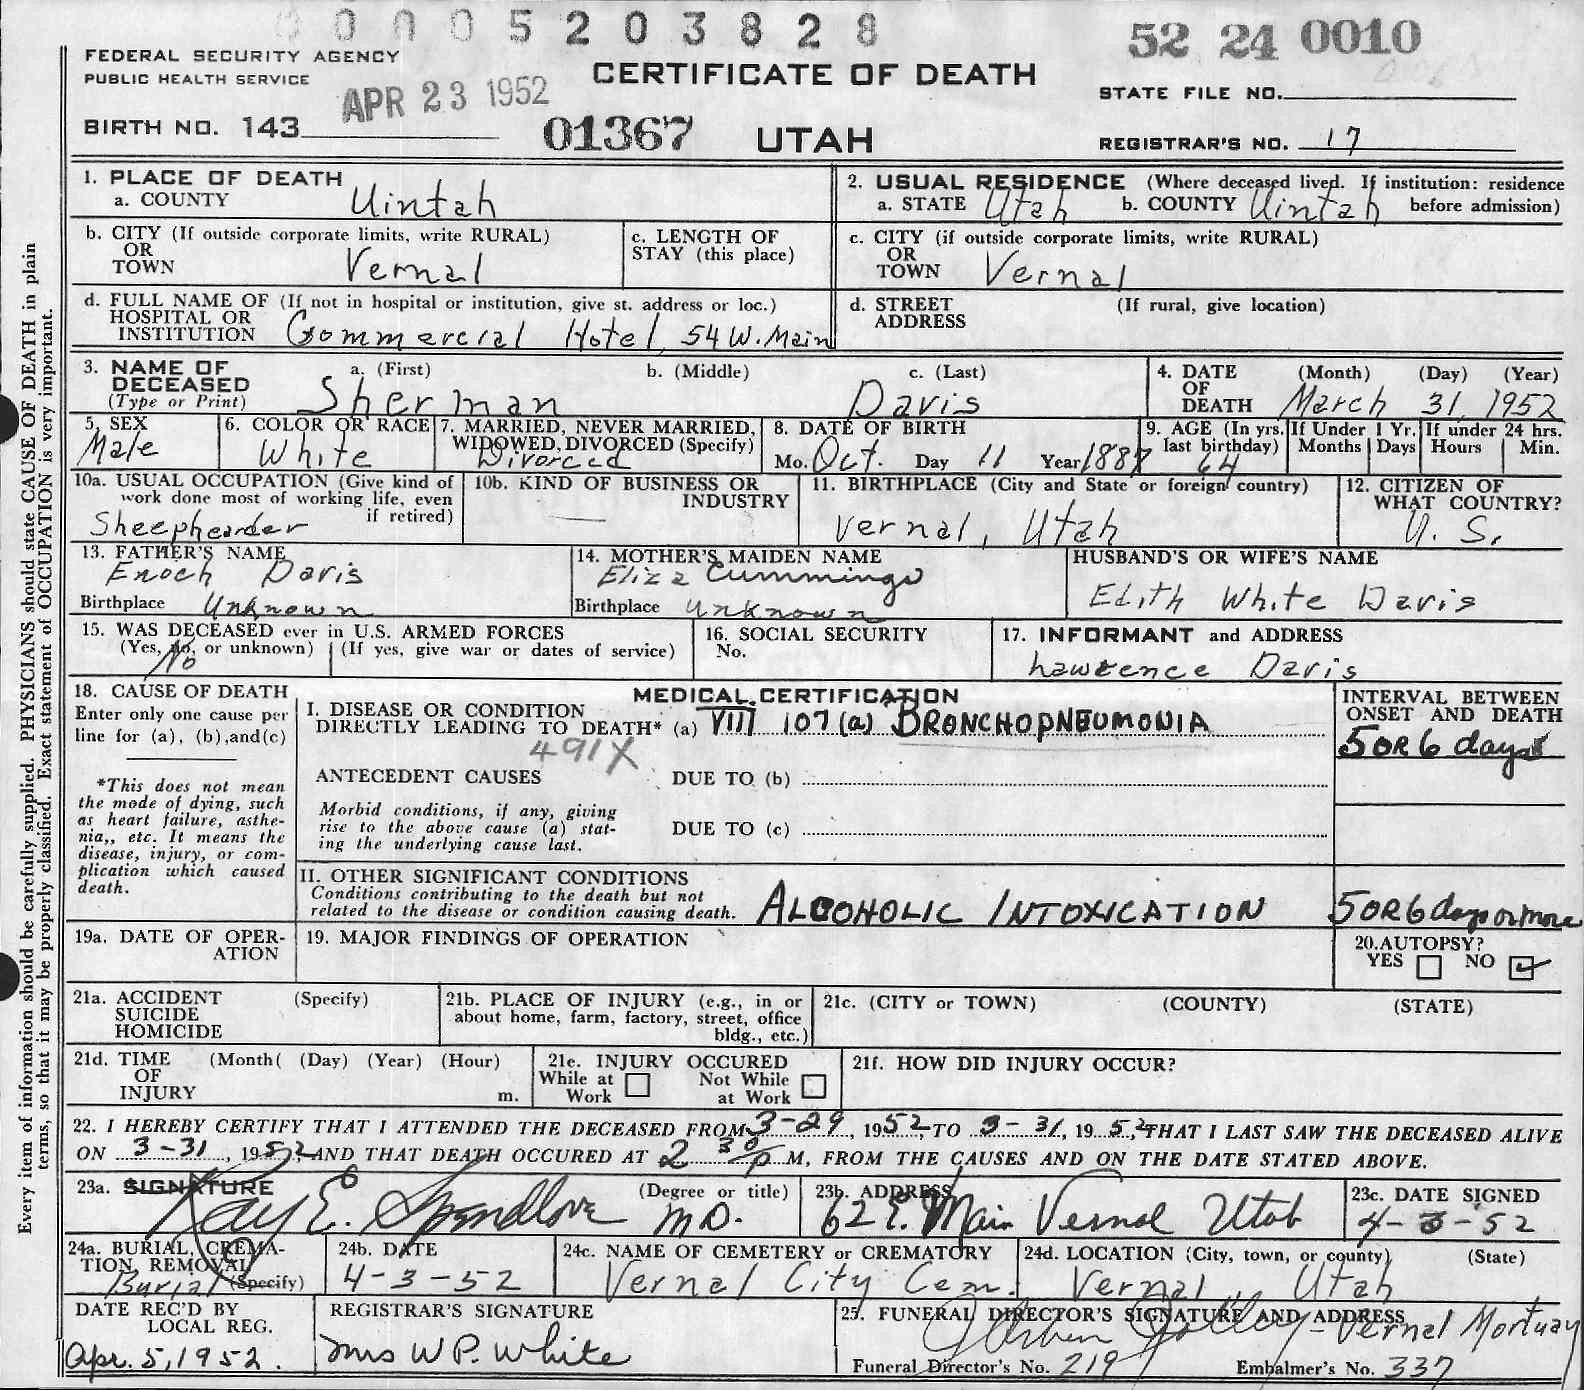 0005203828
52 24 0010
FEDERAL SECURITY AGENCY
PUBLIC HEALTH SERVICE
CERTIFICATE OF DEATH
APR 23 1952
STATE FILE NO.
BIRTH NO. 143
01367
UTAH
REGISTRAR'S NO. 17
Every item of information should be carefully supplied. PHYSICIANS should state CAUSE OF DEATH in plain
terms, so that it may be properly classified. Exact statement of OCCUPATION is very important.
1. PLACE OF DEATH
a. COUNTY Uintah
2. USUAL RESIDENCE (Where deceased lived. If institution: residence
a. STATE Utah b. COUNTY Uintah before admission)
b. CITY (If outside corporate limits, write RURAL)
OR
TOWN Vernal
c. LENGTH OF
STAY (this place)
c. CITY (if outside corporate limits, write RURAL)
OR
TOWN Vernal
d. FULL NAME OF (If not in hospital or institution, give st. address or loc.)
HOSPITAL OR
INSTITUTION Commercial Hotel, 54 W. Main
d. STREET (If rural, give location)
ADDRESS
3. NAME OF
DECEASED
(Type or Print)
a. (First) b. (Middle) c. (Last)
Sherman Davis
4. DATE (Month) (Day) (Year)
OF
DEATH March 31, 1952
5. SEX
Male
6. COLOR OR RACE
White
7. MARRIED, NEVER MARRIED,
WIDOWED, DIVORCED (Specify)
Divorced
8. DATE OF BIRTH
Mo. Oct. Day 11 Year 1887
9. AGE (In yrs.
last birthday)
64
If Under 1 Yr.
Months Days
If under 24 hrs.
Hours Min.
10a. USUAL OCCUPATION (Give kind of
work done most of working life, even
if retired)
Sheephearder
10b. KIND OF BUSINESS OR
INDUSTRY
11. BIRTHPLACE (City and State or foreign country)
Vernal, Utah
12. CITIZEN OF
WHAT COUNTRY?
U. S.
13. FATHER'S NAME
Enoch Davis
Birthplace Unknown
14. MOTHER'S MAIDEN NAME
Eliza Cummings
Birthplace Unknown
HUSBAND'S OR WIFE'S NAME
Edith White Davis
15. WAS DECEASED ever in U.S. ARMED FORCES
(Yes, no, or unknown) (If yes, give war or dates of service)
No
16. SOCIAL SECURITY
No.
17. INFORMANT and ADDRESS
Lawrence Davis
18. CAUSE OF DEATH
Enter only one cause per
line for (a), (b), and (c)
*This does not mean
the mode of dying, such
as heart failure, asthe-
nia,, etc. It means the
disease, injury, or com-
plication which caused
death.
MEDICAL CERTIFICATION
I. DISEASE OR CONDITION
DIRECTLY LEADING TO DEATH* (a) VIII 107 (a) BRONCHOPNEUMONIA
491X
ANTECEDENT CAUSES DUE TO (b)
Morbid conditions, if any, giving
rise to the above cause (a) stat-
ing the underlying cause last.
DUE TO (c)
INTERVAL BETWEEN
ONSET AND DEATH
5 OR 6 days
II. OTHER SIGNIFICANT CONDITIONS
Conditions contributing to the death but not
related to the disease or condition causing death. ALCOHOLIC INTOXICATION
5 OR 6 days or more
19a. DATE OF OPER-
ATION
19. MAJOR FINDINGS OF OPERATION
20. AUTOPSY?
YES NO
21a. ACCIDENT (Specify)
SUICIDE
HOMICIDE
21b. PLACE OF INJURY (e.g., in or
about home, farm, factory, street, office
bldg., etc.)
21c. (CITY or TOWN) (COUNTY) (STATE)
21d. TIME (Month( (Day) (Year) (Hour)
OF
INJURY m.
21e. INJURY OCCURED
While at Work Not While at Work
21f. HOW DID INJURY OCCUR?
22. I HEREBY CERTIFY THAT I ATTENDED THE DECEASED FROM 3-29, 1952, TO 3-31, 1952, THAT I LAST SAW THE DECEASED ALIVE
ON 3-31, 1952, AND THAT DEATH OCCURED AT 2 30 P M, FROM THE CAUSES AND ON THE DATE STATED ABOVE.
23a. SIGNATURE (Degree or title)
Ray E. Spendlove M.D.
23b. ADDRESS
62 E. Main Vernal Utah
23c. DATE SIGNED
4-3-52
24a. BURIAL, CREMA-
TION, REMOVAL
Burial (Specify)
24b. DATE
4-3-52
24c. NAME OF CEMETERY or CREMATORY
Vernal City Cem.
24d. LOCATION (City, town, or county) (State)
Vernal, Utah
DATE REC'D BY
LOCAL REG.
Apr. 5, 1952.
REGISTRAR'S SIGNATURE
Mrs W P. White
25. FUNERAL DIRECTOR'S SIGNATURE AND ADDRESS
- Vernal Mortuay
Funeral Director's No. 219 Embalmer's No. 337